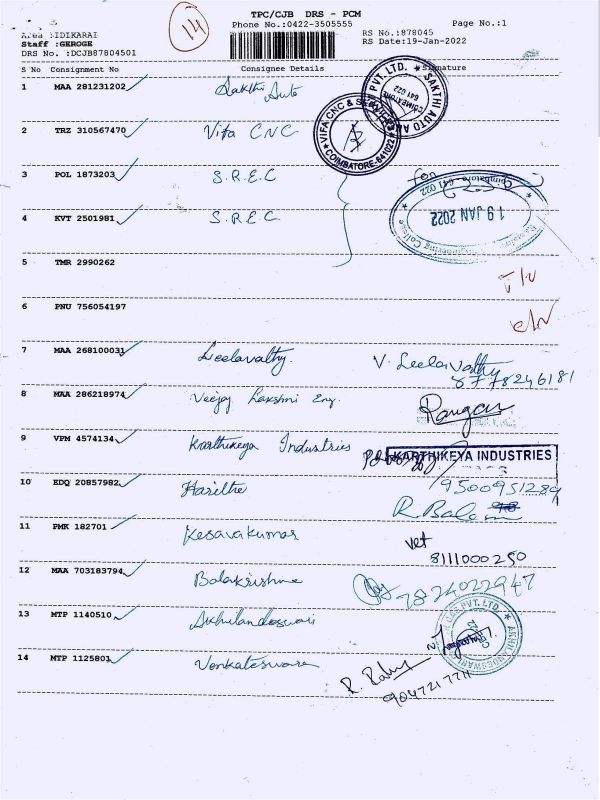 14
TPC/CJB DRS - PCM
Phone No.:0422-3505555
Page No.:1
RS No.:878045
RS Date:19-Jan-2022
Staff :GEROGE
DRS No. :DCJB87804501
S No Consignment No Consignee Details Signature
1 MAA 281231202 Sakthi Auto
SAKTHI AUTO PVT. LTD. COIMBATORE 641 022
2 TRZ 310567470 Vifa CNC
VIFA CNC & COIMBATORE-641022
3 POL 1873203 S.R.E.C
For
4 KVT 2501981 S.R.E.C
Engineering College Coimbatore-641 022
19 JAN 2022
5 TMR 2990262
6 PNU 756054197
7 MAA 268100031 Leelavathy. V. Leelavathy
8778246181
8 MAA 286218974 Veejay Lakshmi Eng. Rangan
9 VPM 4574134 Karthikeya Industries KARTHIKEYA INDUSTRIES
9500951289
10 EDQ 20857982
R Balan
11 PMK 182701 Kesavakumar
8111000250
12 MAA 703183794 Balakrishna
7824022947
13 MTP 1140510 Akhilandeswari
AKHILANDESWARI PVT. LTD.
14 MTP 1125801 Venkateswara
9047217711